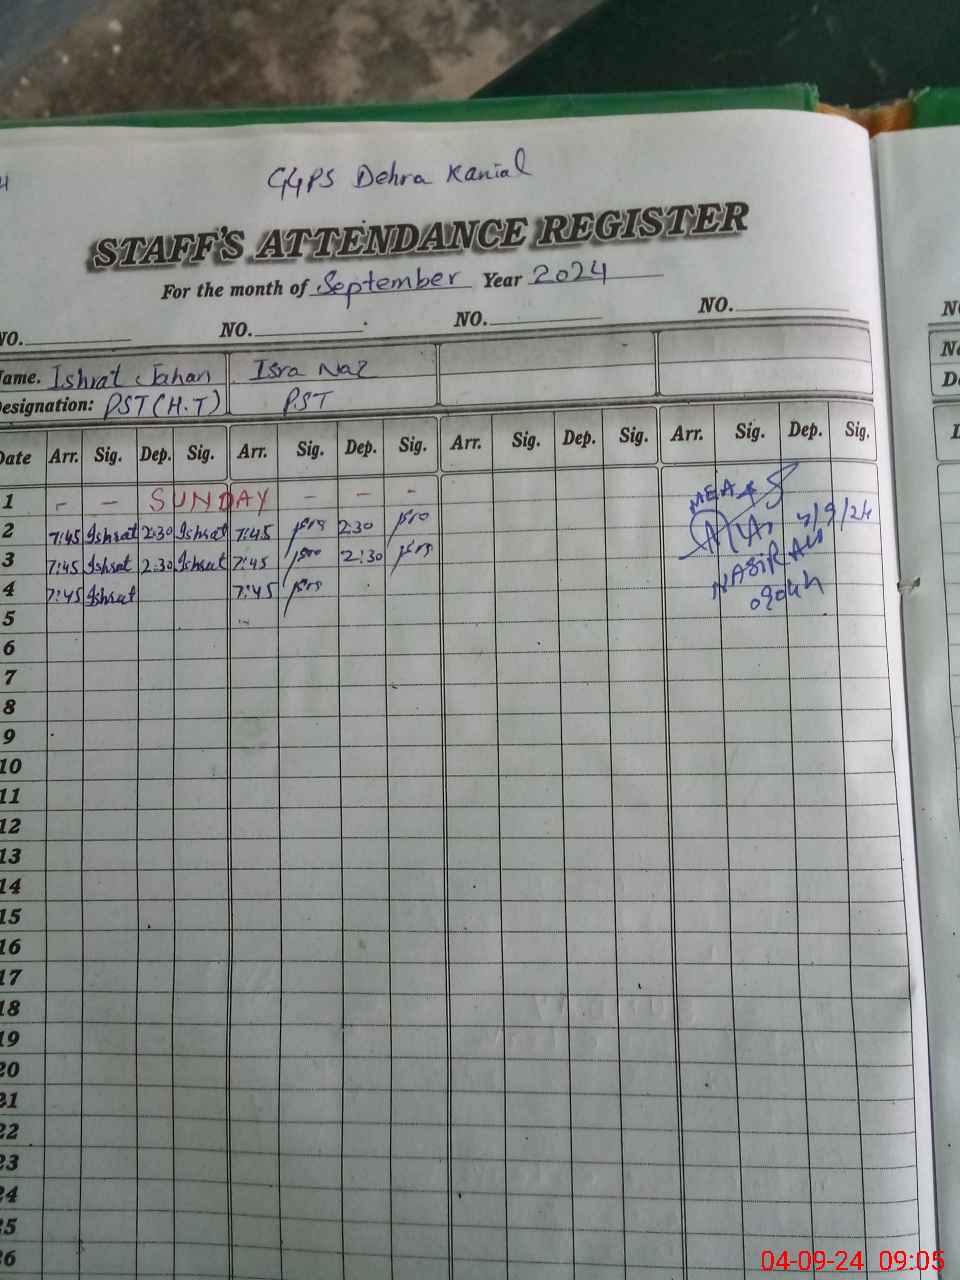 GGPS Dehra Kanial
STAFF'S ATTENDANCE REGISTER
For the month of September Year 2024
NO. NO. NO. NO.
Name. Ishrat Jahan Isra Naz
Designation: PST (H.T) PST
Date Arr. Sig. Dep. Sig. Arr. Sig. Dep. Sig. Arr. Sig. Dep. Sig. Arr. Sig. Dep. Sig.
1 - - SUNDAY - - - MEA
2 7:45 Ishrat 2:30 Ishrat 7:45 2:30
3 7:45 Ishrat 2:30 Ishrat 7:45 2:30 NASIR ALI
4 7:45 Ishrat 7:45
5
6
7
8
9
10
11
12
13
14
15
16
17
18
19
20
21
22
23
24
25
26
04-09-24 09:05